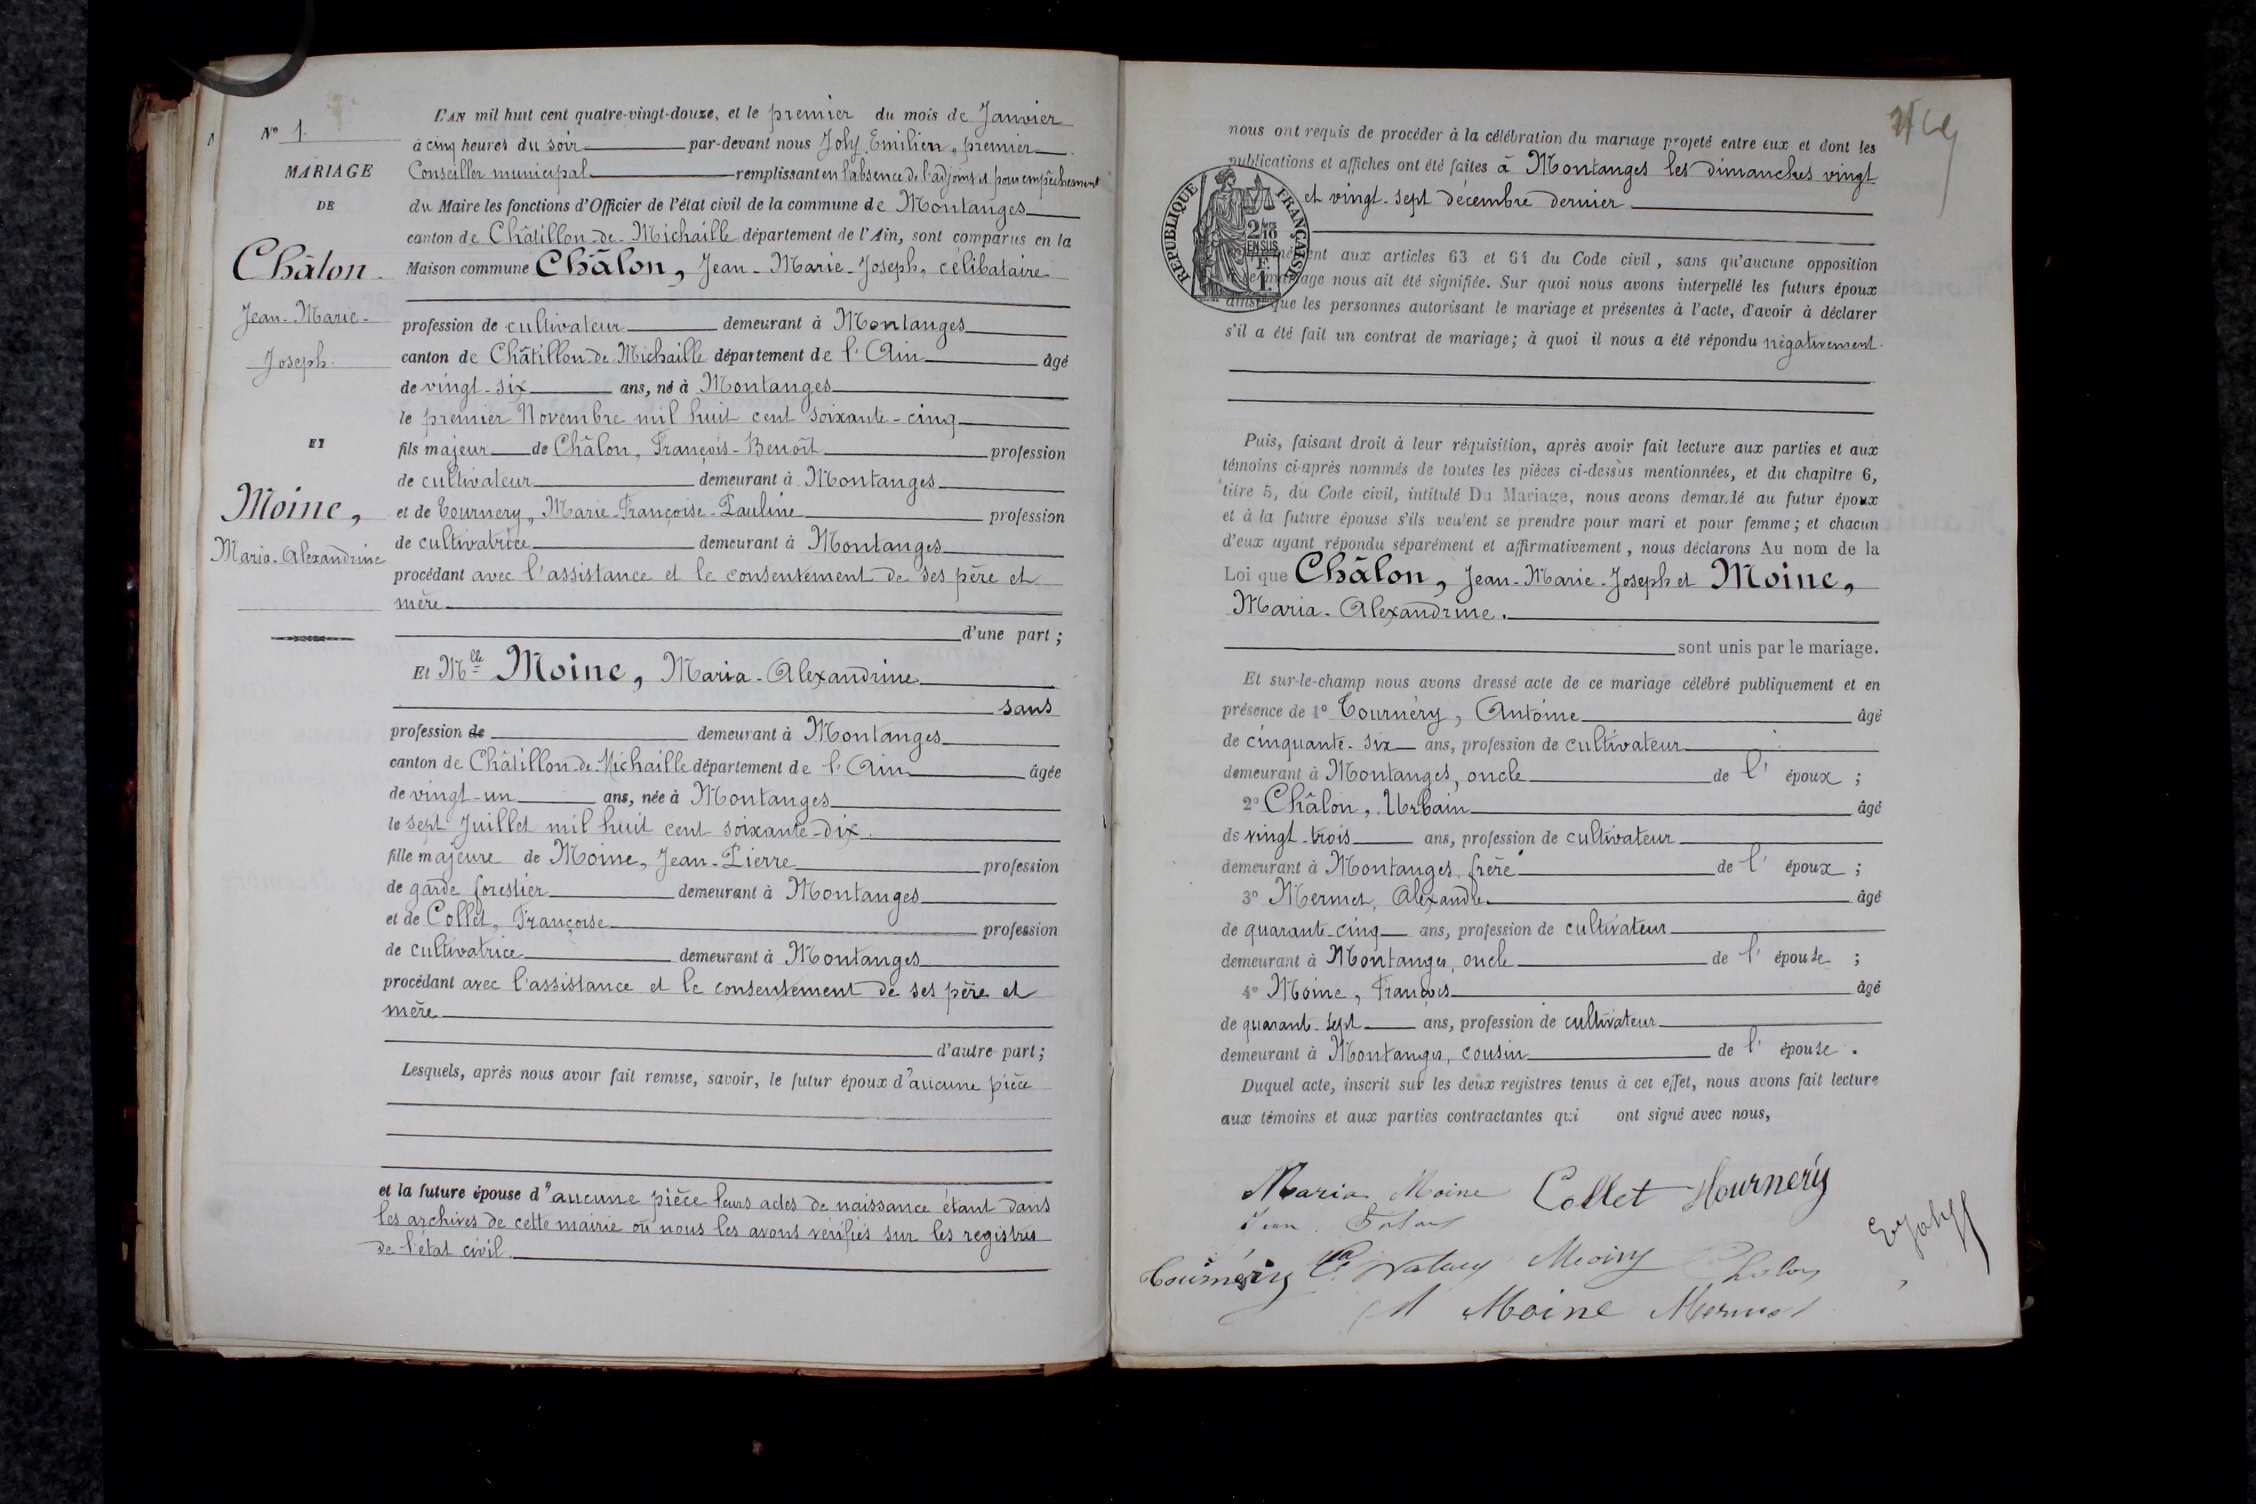 N° 1
MARIAGE
DE
Châlon
Jean-Marie-
Joseph
ET
Moine,
Maria-Alexandrine
L'AN mil huit cent quatre-vingt-douze, et le premier du mois de Janvier
à cinq heures du soir par-devant nous Joly, Emilien, premier
Conseiller municipal remplissant en l'absence de l'adjoint et pour empêchement
du Maire les fonctions d'Officier de l'état civil de la commune de Montanges
canton de Châtillon-de-Michaille département de l'Ain, sont comparus en la
Maison commune Châlon, Jean-Marie-Joseph, célibataire
profession de cultivateur demeurant à Montanges
canton de Châtillon-de-Michaille département de l'Ain âgé
de vingt-six ans, né à Montanges
le premier Novembre mil huit cent soixante-cinq
fils majeur de Châlon, François-Benoît profession
de cultivateur demeurant à Montanges
et de Tournery, Marie-Françoise-Pauline profession
de cultivatrice demeurant à Montanges
procédant avec l'assistance et le consentement de ses père et
mère
d'une part ;
Et Mlle Moine, Maria-Alexandrine
sans
profession de demeurant à Montanges
canton de Châtillon-de-Michaille département de l'Ain âgée
de vingt-un ans, née à Montanges
le sept Juillet mil huit cent soixante-dix
fille majeure de Moine, Jean-Pierre profession
de garde forestier demeurant à Montanges
et de Collet, Françoise profession
de cultivatrice demeurant à Montanges
procédant avec l'assistance et le consentement de ses père et
mère
d'autre part ;
Lesquels, après nous avoir fait remise, savoir, le futur époux d'aucune pièce
et la future épouse d'aucune pièce leurs actes de naissance étant dans
les archives de cette mairie où nous les avons vérifiés sur les registres
de l'état civil
nous ont requis de procéder à la célébration du mariage projeté entre eux et dont les
publications et affiches ont été faites à Montanges les dimanches vingt
et vingt-sept décembre dernier
RÉPUBLIQUE FRANÇAISE
2/10 EN SUS
F.
1
aux articles 63 et 64 du Code civil, sans qu'aucune opposition
mariage nous ait été signifiée. Sur quoi nous avons interpellé les futurs époux
ainsi que les personnes autorisant le mariage et présentes à l'acte, d'avoir à déclarer
s'il a été fait un contrat de mariage ; à quoi il nous a été répondu négativement.
Puis, faisant droit à leur réquisition, après avoir fait lecture aux parties et aux
témoins ci-après nommés de toutes les pièces ci-dessus mentionnées, et du chapitre 6,
titre 5, du Code civil, intitulé Du Mariage, nous avons demandé au futur époux
et à la future épouse s'ils veulent se prendre pour mari et pour femme ; et chacun
d'eux ayant répondu séparément et affirmativement, nous déclarons Au nom de la
Loi que Châlon, Jean-Marie-Joseph et Moine,
Maria-Alexandrine.
sont unis par le mariage.
Et sur-le-champ nous avons dressé acte de ce mariage célébré publiquement et en
présence de 1° Tournéry, Antoine âgé
de cinquante-six ans, profession de cultivateur
demeurant à Montanges, oncle de l' époux ;
2° Châlon, Urbain âgé
de vingt-trois ans, profession de cultivateur
demeurant à Montanges, frère de l' époux ;
3° Mermet, Alexandre âgé
de quarante-cinq ans, profession de cultivateur
demeurant à Montanges, oncle de l' épouse ;
4° Moine, François âgé
de quarante-sept ans, profession de cultivateur
demeurant à Montanges, cousin de l' épouse.
Duquel acte, inscrit sur les deux registres tenus à cet effet, nous avons fait lecture
aux témoins et aux parties contractantes qui ont signé avec nous,
Maria Moine Collet Tournery
Tournéry
Moine Mermet